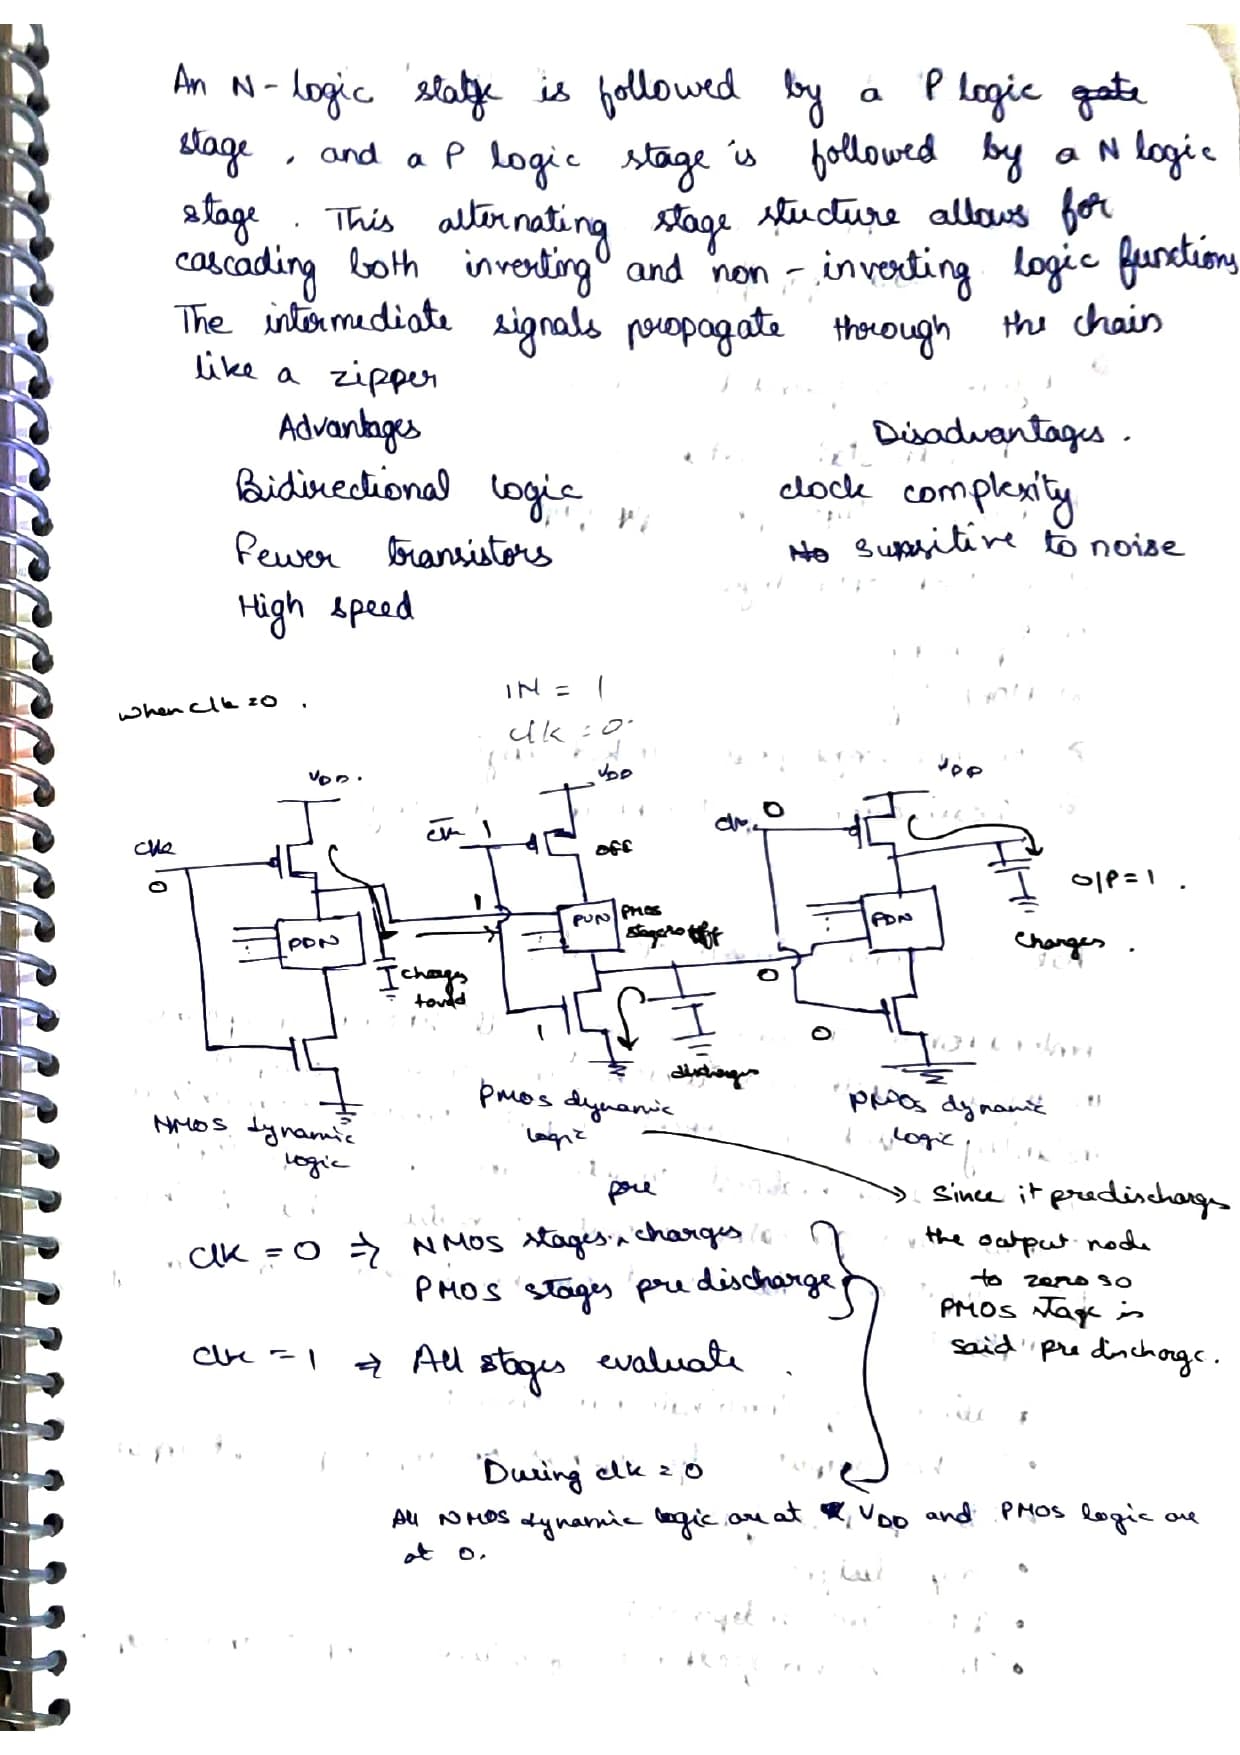 An N-logic stage is followed by a P logic gate
stage, and a P logic stage is followed by a N logic
stage. This alternating stage stucture allows for
cascading both inverting and non-inverting logic functions
The intermediate signals propagate through the chain
like a zipper
Advantages Disadvantages.
Bidirectional logic clock complexity
Fewer transistors No sensitive to noise
High speed
when clk=0.
IN = 1
clk = 0.
VDD. VDD VDD
clk 0 clk 1 off clk. 0
O/P=1.
PDN 1 PUN PMOS PDN
stage off
charges 0 Charges.
1 0
discharges
NMOS dynamic logic
PMOS dynamic logic
dynamic logic
pre
clk = 0 ⇒ NMOS stages charges
PMOS stages predischarge
clk = 1 ⇒ All stages evaluate.
→ Since it predischarges
the output node
to zero so
PMOS stage is
said predischarge.
During clk = 0
All NMOS dynamic logic are at VDD and PMOS logic are
at 0.